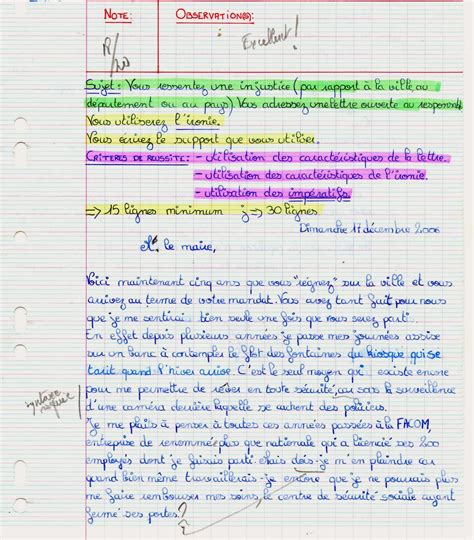 NOTE:
OBSERVATION(S):
/20
Excellent!
Sujet: Vous ressentez une injustice (par rapport à la ville, au
département ou au pays) Vous adressez une lettre ouverte au responsable
Vous utiliserez l'ironie.
Vous écrirez le support que vous utiliser.
CRITÈRES DE RÉUSSITE: - utilisation des caractéristiques de la lettre.
- utilisation des caractéristiques de l'ironie.
- utilisation des impératifs.
=> 15 lignes minimum => 30 lignes
Dimanche 17 décembre 2006
M. le maire,
Voici maintenant cinq ans que vous "régnez" sur la ville et vous
arrivez au terme de votre mandat. Vous avez tant fait pour nous
que je me sentirai bien seule une fois que vous serez parti.
En effet depuis plusieurs années je passe mes journées assise
sur un banc à contempler le flot des fontaines du kiosque qui se
tarit quand l'hiver arrive. C'est le seul moyen qui existe encore
pour me permettre de rêver en toute sécurité, au sas la surveillance
d'une caméra derrière laquelle se cachent des policiers.
syntaxe
Je me plais à penser à toutes ces années passées à la FACOM,
entreprise de renommée plus que nationale qui a licencié ses 200
employés dont je faisais parti. Mais dois-je m'en plaindre car
quand bien même travaillerais-je encore que je ne pourrais plus
me faire rembourser mes soins, le centre de sécurité sociale ayant
fermé ses portes?